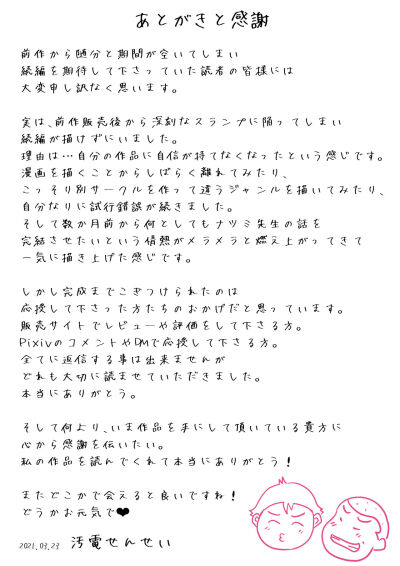 あとがきと感謝
前作から随分と期間が空いてしまい
続編を期待して下さっていた読者の皆様には
大変申し訳なく思います。
実は、前作販売後から深刻なスランプに陥ってしまい
続編が描けずにいました。
理由は…自分の作品に自信が持てなくなったという感じです。
漫画を描くことからしばらく離れてみたり、
こっそり別サークルを作って違うジャンルを描いてみたり、
自分なりに試行錯誤が続きました。
そして数か月前から何としてもナツミ先生の話を
完結させたいという情熱がメラメラと燃え上がってきて
一気に描き上げた感じです。
しかし完成までこぎつけられたのは
応援して下さった方たちのおかげだと思っています。
販売サイトでレビューや評価をして下さる方。
Pixivのコメントやdmで応援して下さる方。
全てに返信する事は出来ませんが
どれも大切に読ませていただきました。
本当にありがとう。
そして何より、いま作品を手にして頂いている貴方に
心から感謝を伝いたい。
私の作品を読んでくれて本当にありがとう！
またどこかで会えると良いですね！
どうかお元気で♥
2021.03.23 汚電せんせい